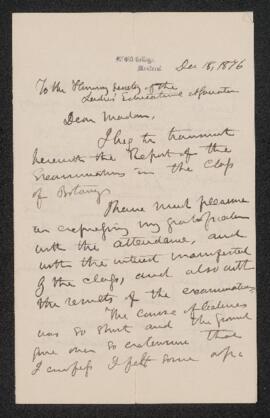 McGill College,
Montreal
Dec 18, 1876
To the Honorary Secretary of the
Ladies' Educational Association
Dear Madam,
I beg to transmit
herewith the Report of the
Examinations in the Class
of Botany
I have much pleasure
in expressing my gratification
with the attendance, and
with the interest manifested
by the class, and also with
the results of the examination.
The course of lectures
was so short and the ground
gone over so extensive that
I confess I felt some